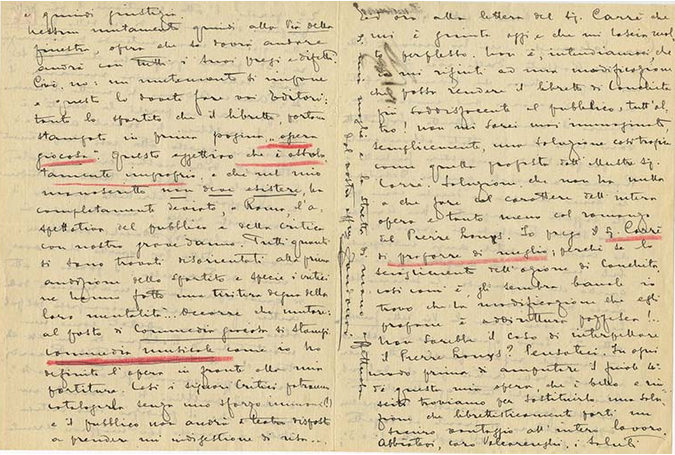 e quindi giustizia.
Nessun mutamento quindi alla Via della
finestra, opera che se dovrà andare
andrà con tutti i suoi pregi e difetti
Cioè, no: un mutamento si impone
e questo lo dovete fare voi editori:
tanto lo spartito che il libretto, portano
stampato in prima pagina, "opera
giocosa". Questo aggettivo che è assolu-
tamente improprio, e che nel mio
manoscritto non deve esistere, ha
completamente deviato, a Roma, l'a-
spettativa del pubblico e della critica
con nostro grave danno. Tutti quanti
si sono trovati disorientati alla prima
audizione dello spartito e specie i critici
ne hanno fatto una tiritera degna della
loro mentalità... Occorre che mutare:
al posto di Commedia giocosa si stampi
commedia musicale come io ho
definito l'opera in fronte alla mia
partitura. Così i signori critici potranno
catalogarla senza uno sforzo immane (!)
e il pubblico non andrà a teatro disposto
a prendere mi indigestione di risa...
Ed ora alla lettera del Sig. Carré che
mi è giunta oggi e che mi lascia mol-
to perplesso. Non è, intendiamoci, che
mi rifiuti ad una modificazione
che possa rendere il libretto di Conchita
più soddisfacente al pubblico, tutt'al-
tro! non mi sarei mai immaginato,
semplicemente, una soluzione così tragica
com quella proposta dall'Illustre Sig.
Carré. Soluzione che non ha nulla
a che fare col carattere dell'intera
opera e tanto meno col romanzo
di Pierre Louÿs. Io prego il Sig. Carré
di proporre di meglio, perché se lo
scioglimento dell'azione di Conchita,
così com'è, gli sembra banale io
trovo che la modificazione che egli
propone è addirittura pazzesca!..
Non sarebbe il caso di interpellare
il Pierre Louÿs? Pensateci. In ogni
modo prima di amputare il finale
di questa mia opera, che è bello e riu-
scito troviamo per sostituirlo una solu-
zione che libretteticamente porti un
vantaggio all'intero lavoro.
Abbiatevi, caro Clausetti, i saluti